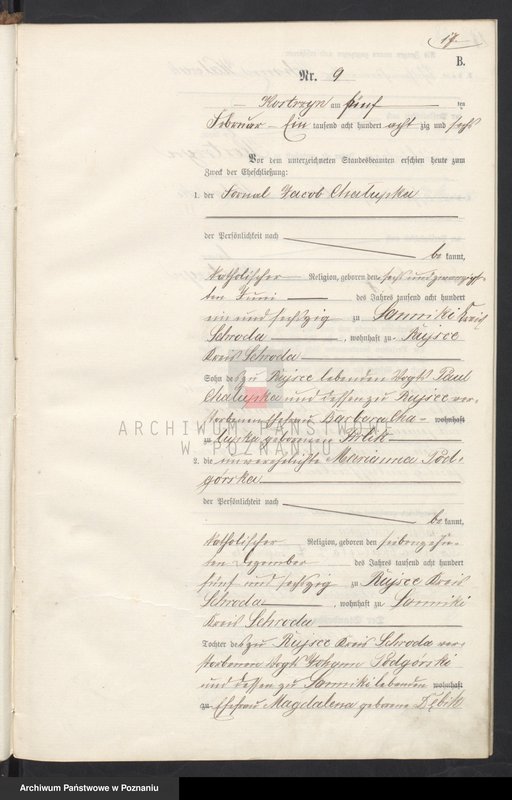 17
B.
Nr. 9
Kostrzyn am fünf ten
Februar Ein tausend acht hundert acht zig und sechs
Vor dem unterzeichneten Standesbeamten erschien heute zum
Zweck der Eheschließung:
1. der Fornal Jacob Chalupka
der Persönlichkeit nach
be kannt,
katholischer Religion, geboren den sechs und zwanzigs-
ten Juni des Jahres tausend acht hundert
ein und sechszig zu Sanniki Kreis
Schroda, wohnhaft zu Rujsce
Kreis Schroda
Sohn des zu Rujsce lebenden Vogts Paul
Chalupka und dessen zu Rujsce ver-
storbenen Ehefrau Barbara Cha- wohnhaft
zu lupka geborenen
ARCHIWUM PAŃSTWOWE
W POZNANIU
2. die unverehelichte Marianna Pod-
górska
der Persönlichkeit nach
be kannt,
katholischer Religion, geboren den siebenzehn-
ten Dezember des Jahres tausend acht hundert
fünf und sechszig zu Rujsce Kreis
Schroda, wohnhaft zu Sanniki
Kreis Schroda
Tochter des zu Rujsce Kreis Schroda ver-
storbenen Vogts Johann Podgorski
und dessen zu Sanniki lebenden wohnhaft
zu Ehefrau Magdalena geborene Dębik
Archiwum Państwowe w Poznaniu